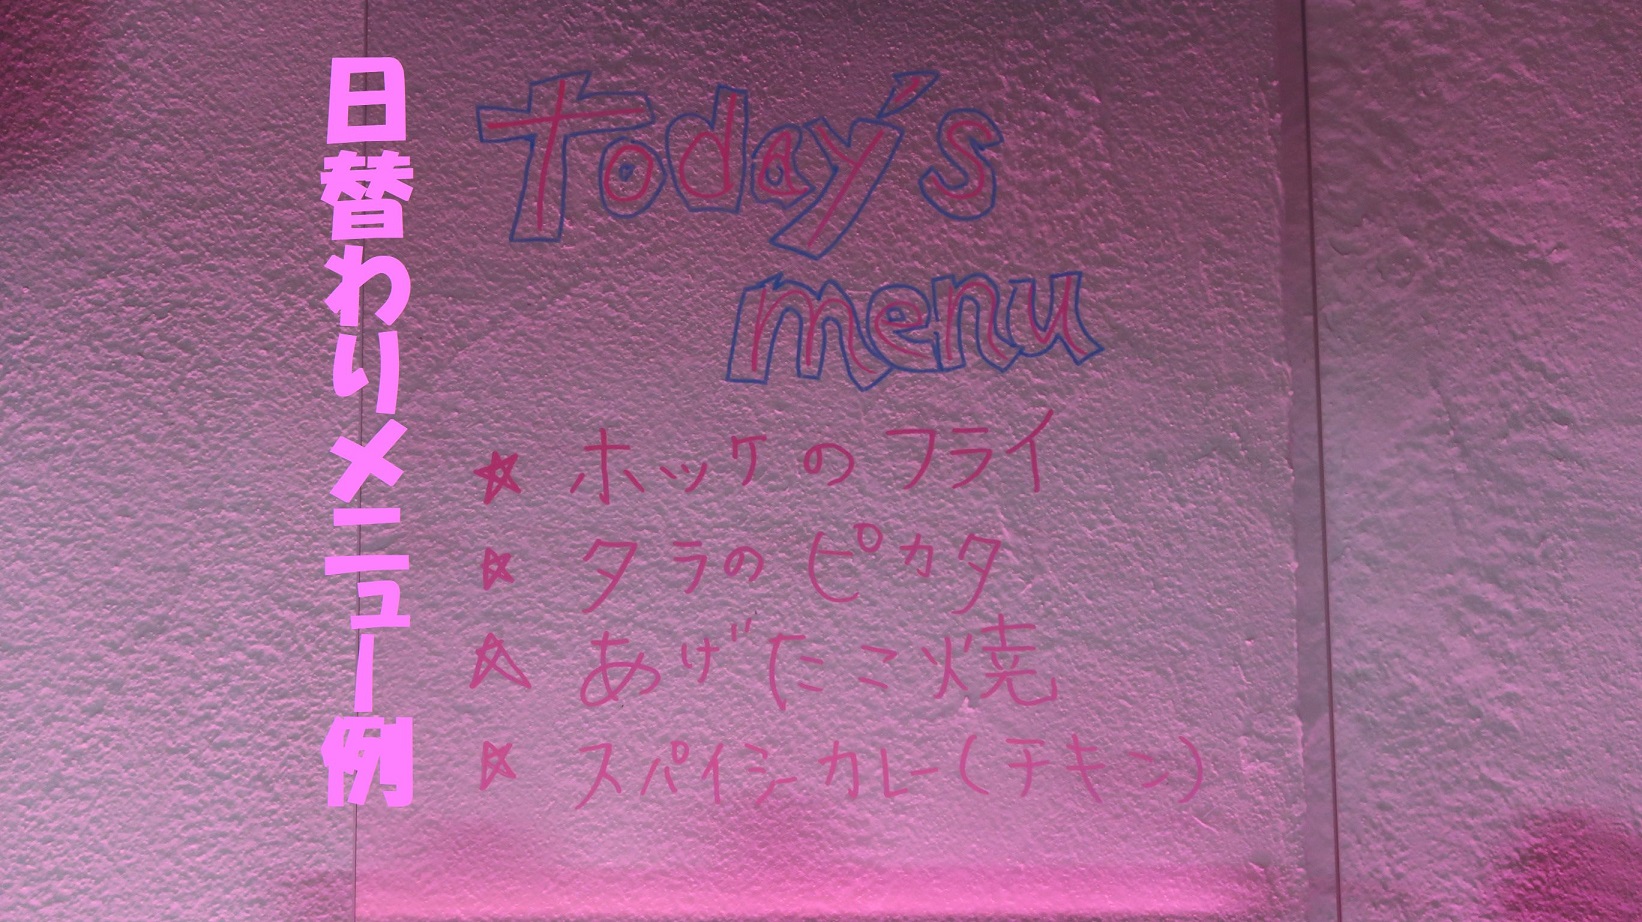 日替わりメニュー例
Today's
menu
☆ ホッケのフライ
☆ タラのピカタ
☆ あげたこ焼
☆ スパイシーカレー(チキン)